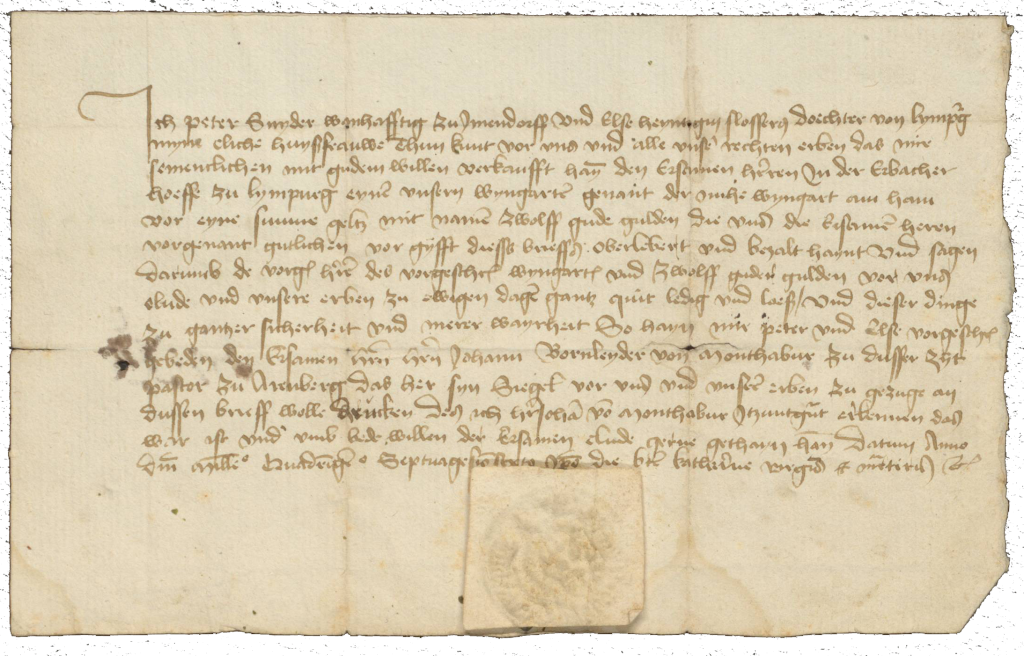 Ich peter Snyder wonhafftig zu Jmendorff und Else slossers doechter von lympurg
myn eliche huyssfrauwe Thun kunt vor uns und alle unser rechten erben das mir
semenclichen mit gudem willen verkaufft han den Ersamen herren Jn der Erbacher
hoeffe zu lympurg eynen unsern wyngarten genant der wyngart am ham
vor eyne summe geltz mit namen zwolff gude gulden die uns die Ersamen heren
vorgenant gutlichen vor gyfft diesss brieffs oberlibert und bezalt haynt Und sagen
darumb de vorg heren des vorgeschr wyngarten und zwolff guden gulden vor uns
elude und unsere erben zu ewigen dagen gantz quit ledig und loess Und dieser dinge
zu gantzer sicherheit und merer wayrheit So hayn mir peter und Else vorgeschr
gebeden den Ersamen hern hern Johann Bornlender von Monthabur zu dusser zyt
pastor zu Arenberg das her syn Siegel vor uns und unser erben zu gezuge an
dussen brieff wolle drucken Des ich her Johan von Monthabur erkennen das
war ist und umb bede willen der Ersamen elude gerne gethayn han Datum Anno
dm mille quadringe Septuagesimo die bte katherine virginis et martiris